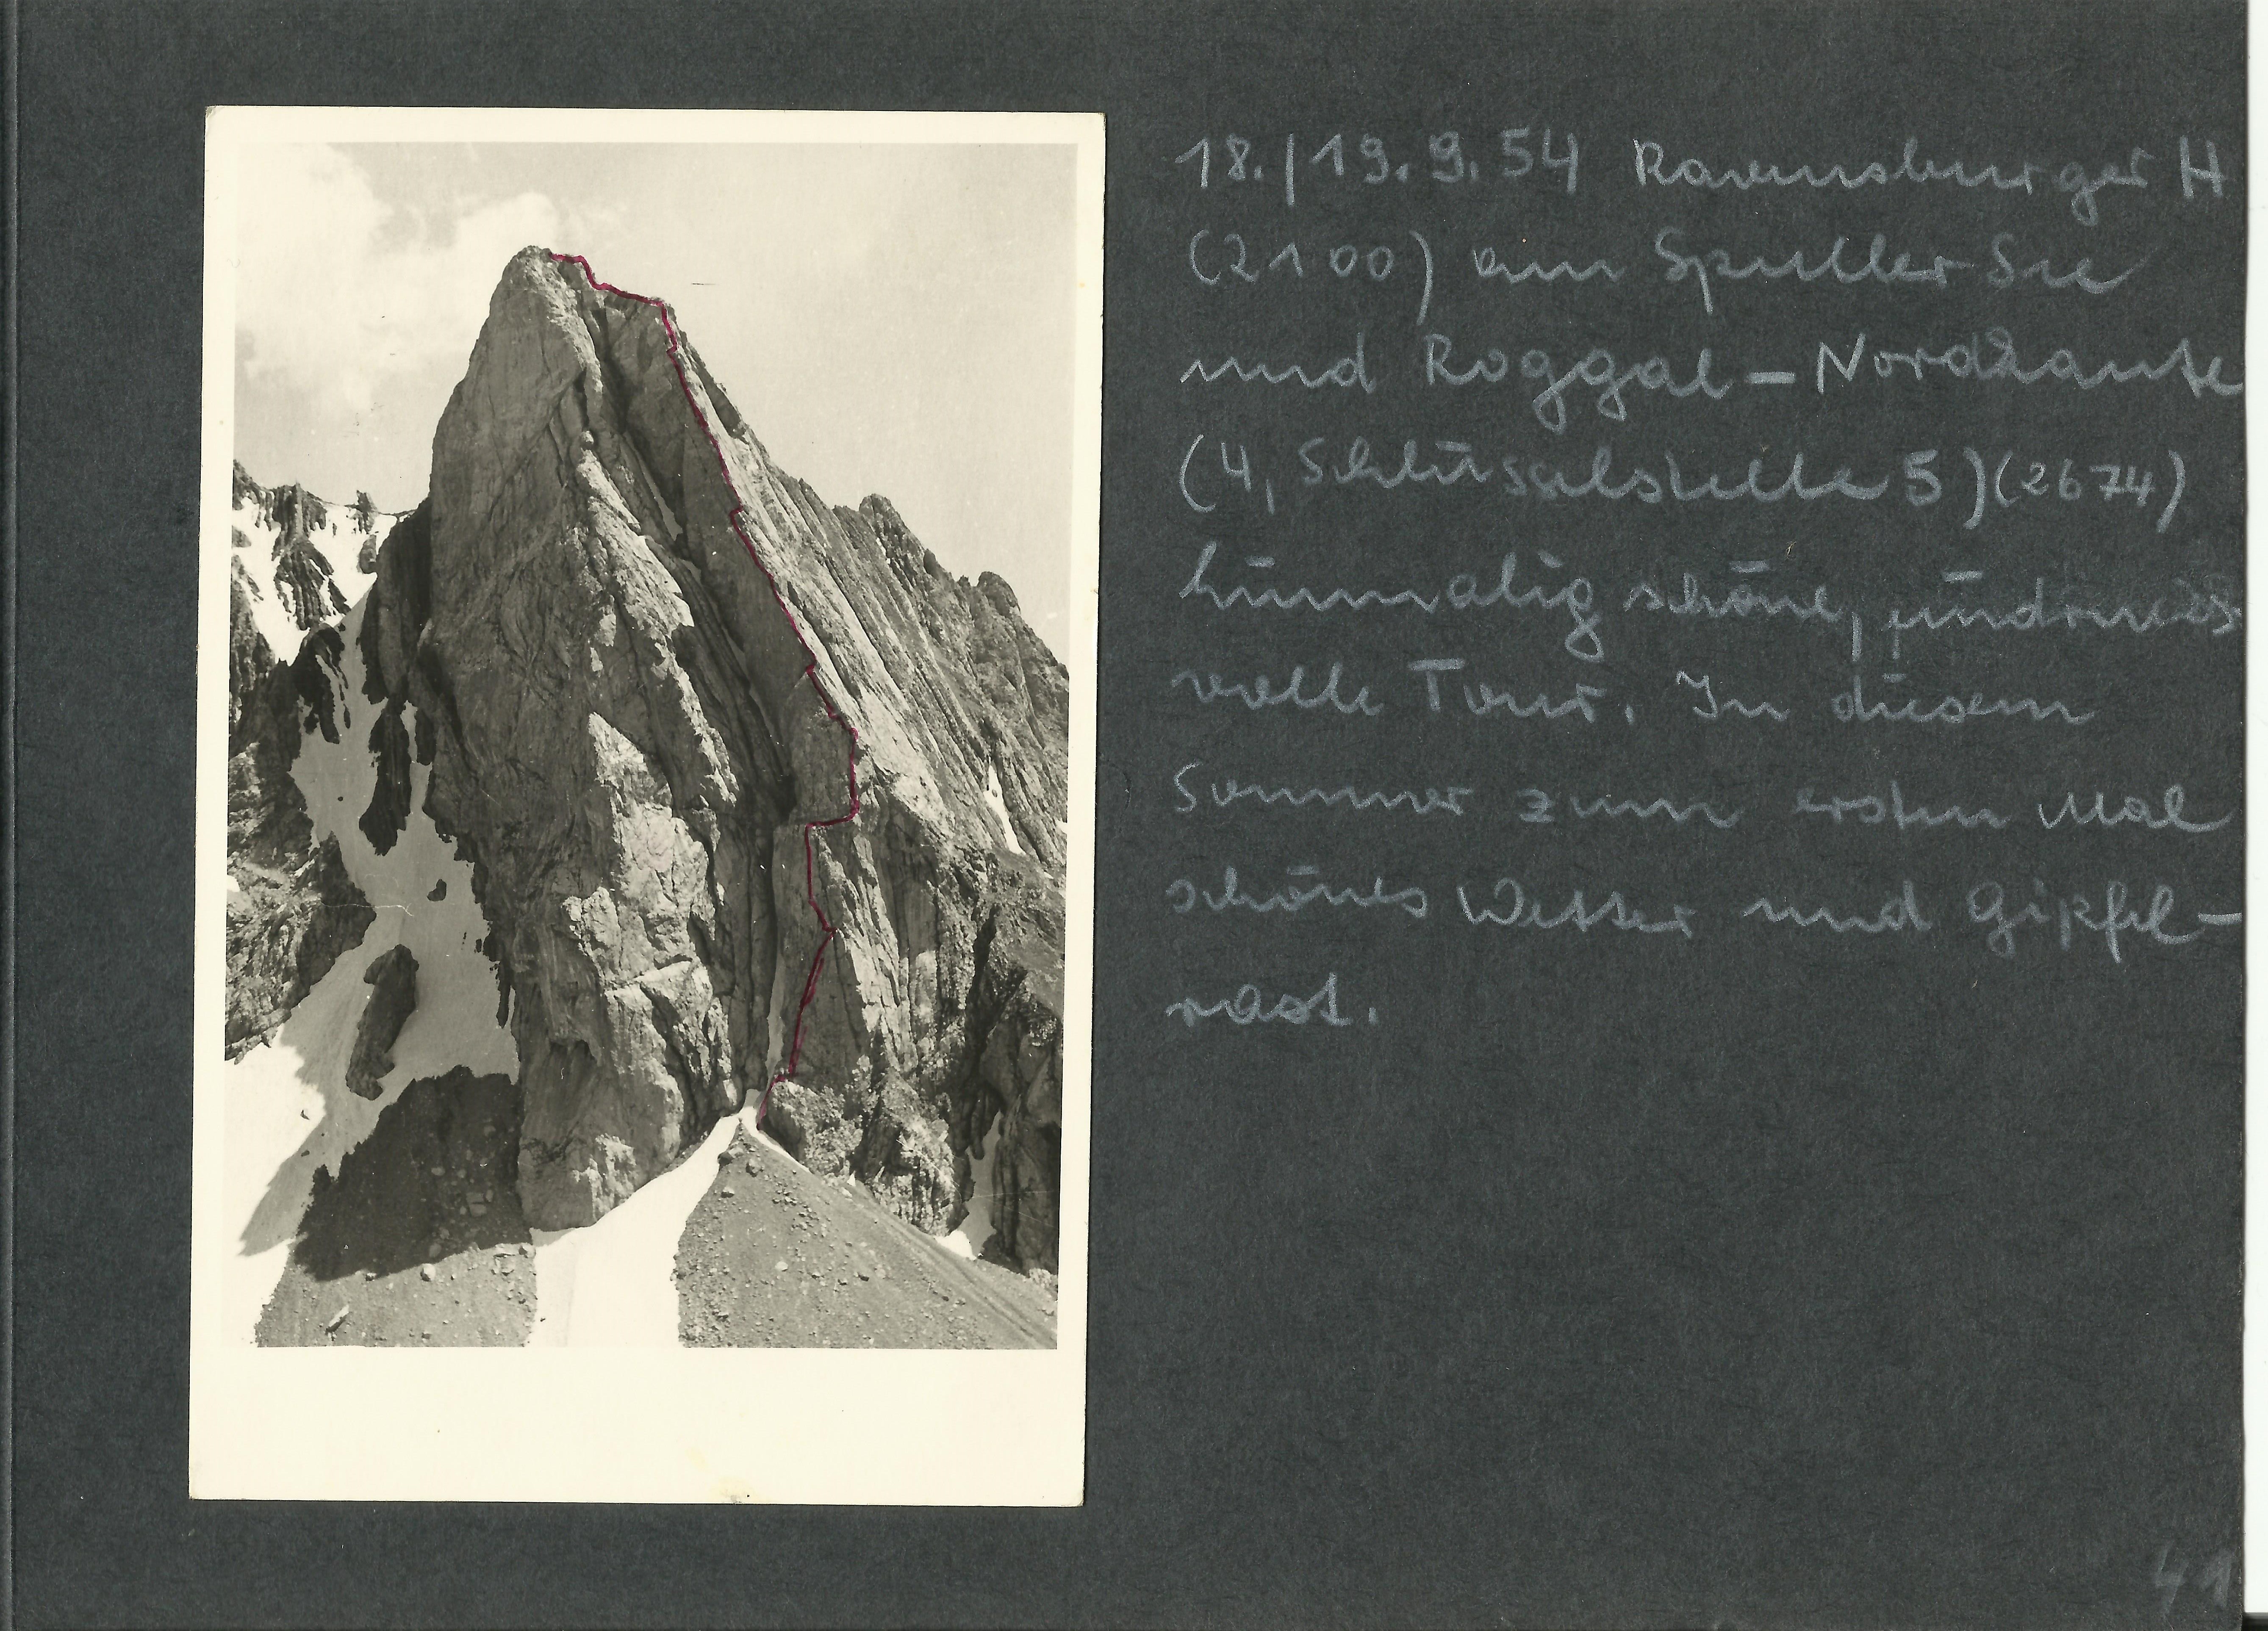 18./19.9.54 Ravensburger H
(2100) am Spuller See
und Roggal-Nordkante
(4, Schlüsselstelle 5)(2674)
himmelig schöne, eindrucks
volle Tour. In diesem
Sommer zum ersten Mal
schönes Wetter und Gipfel-
rast.
41